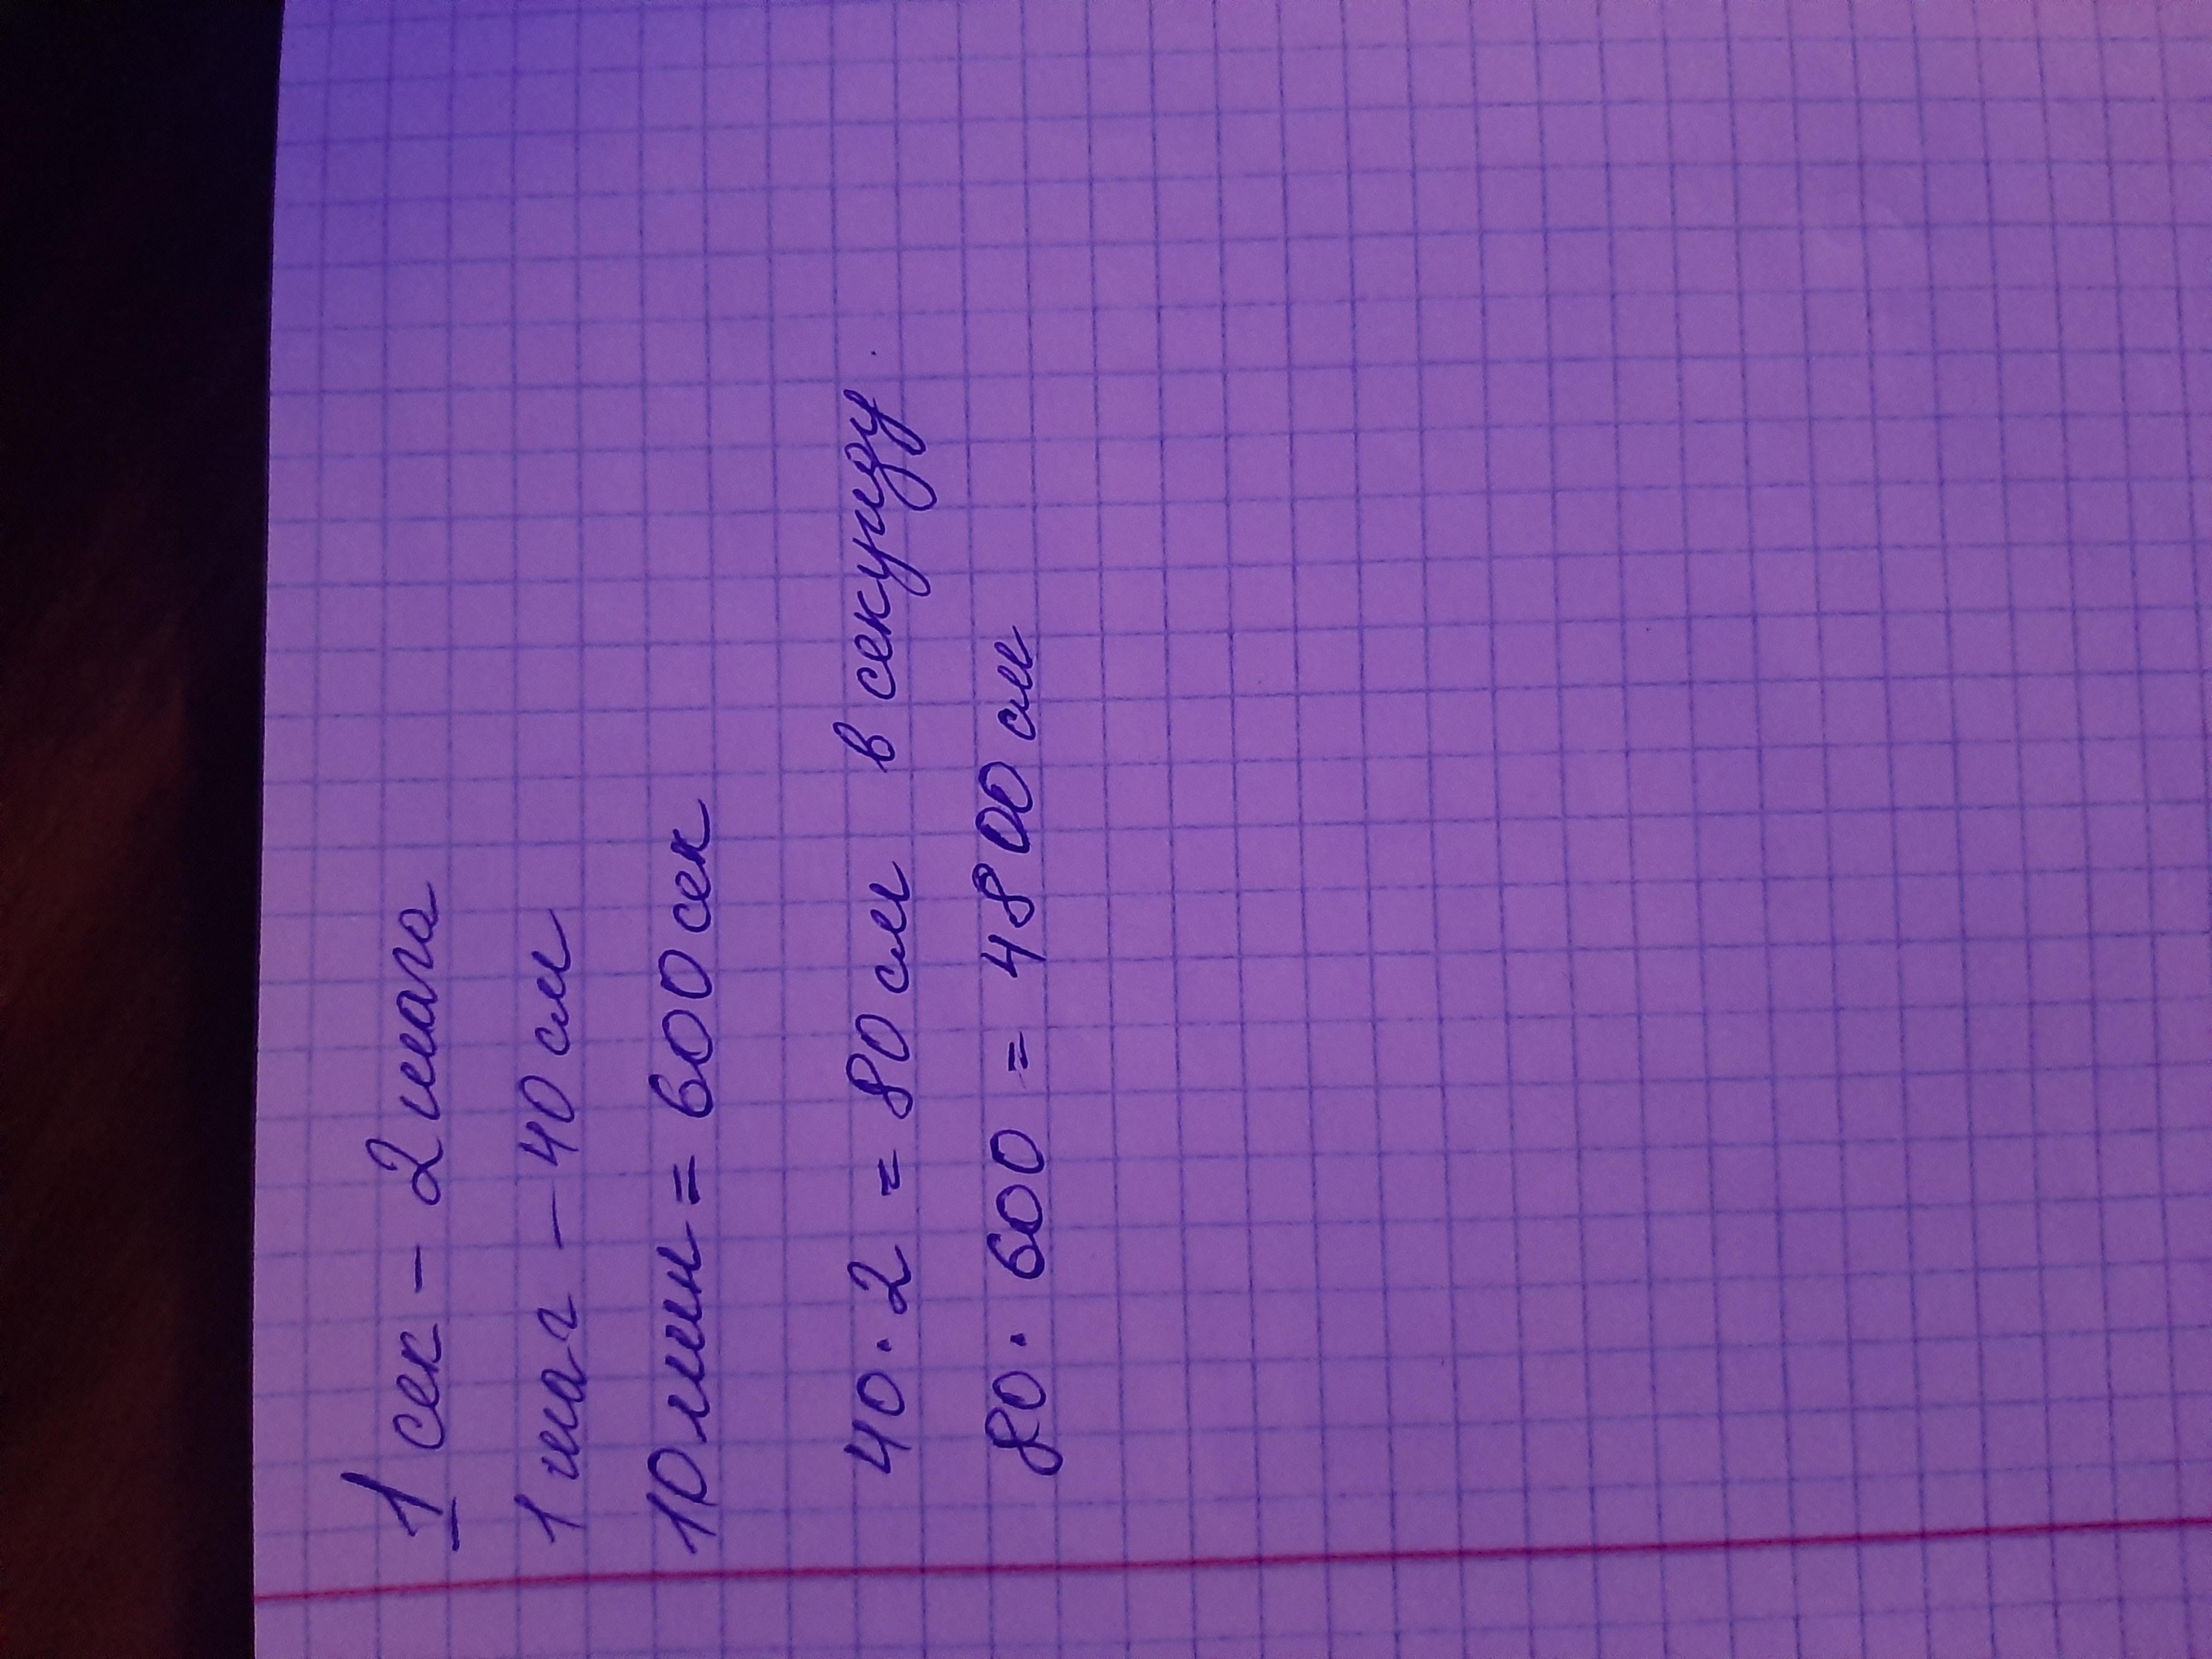 1 сек - 2 шага
1 шаг - 40 см
10 мин = 600 сек
40 · 2 = 80 см в секунду.
80 · 600 = 4800 см